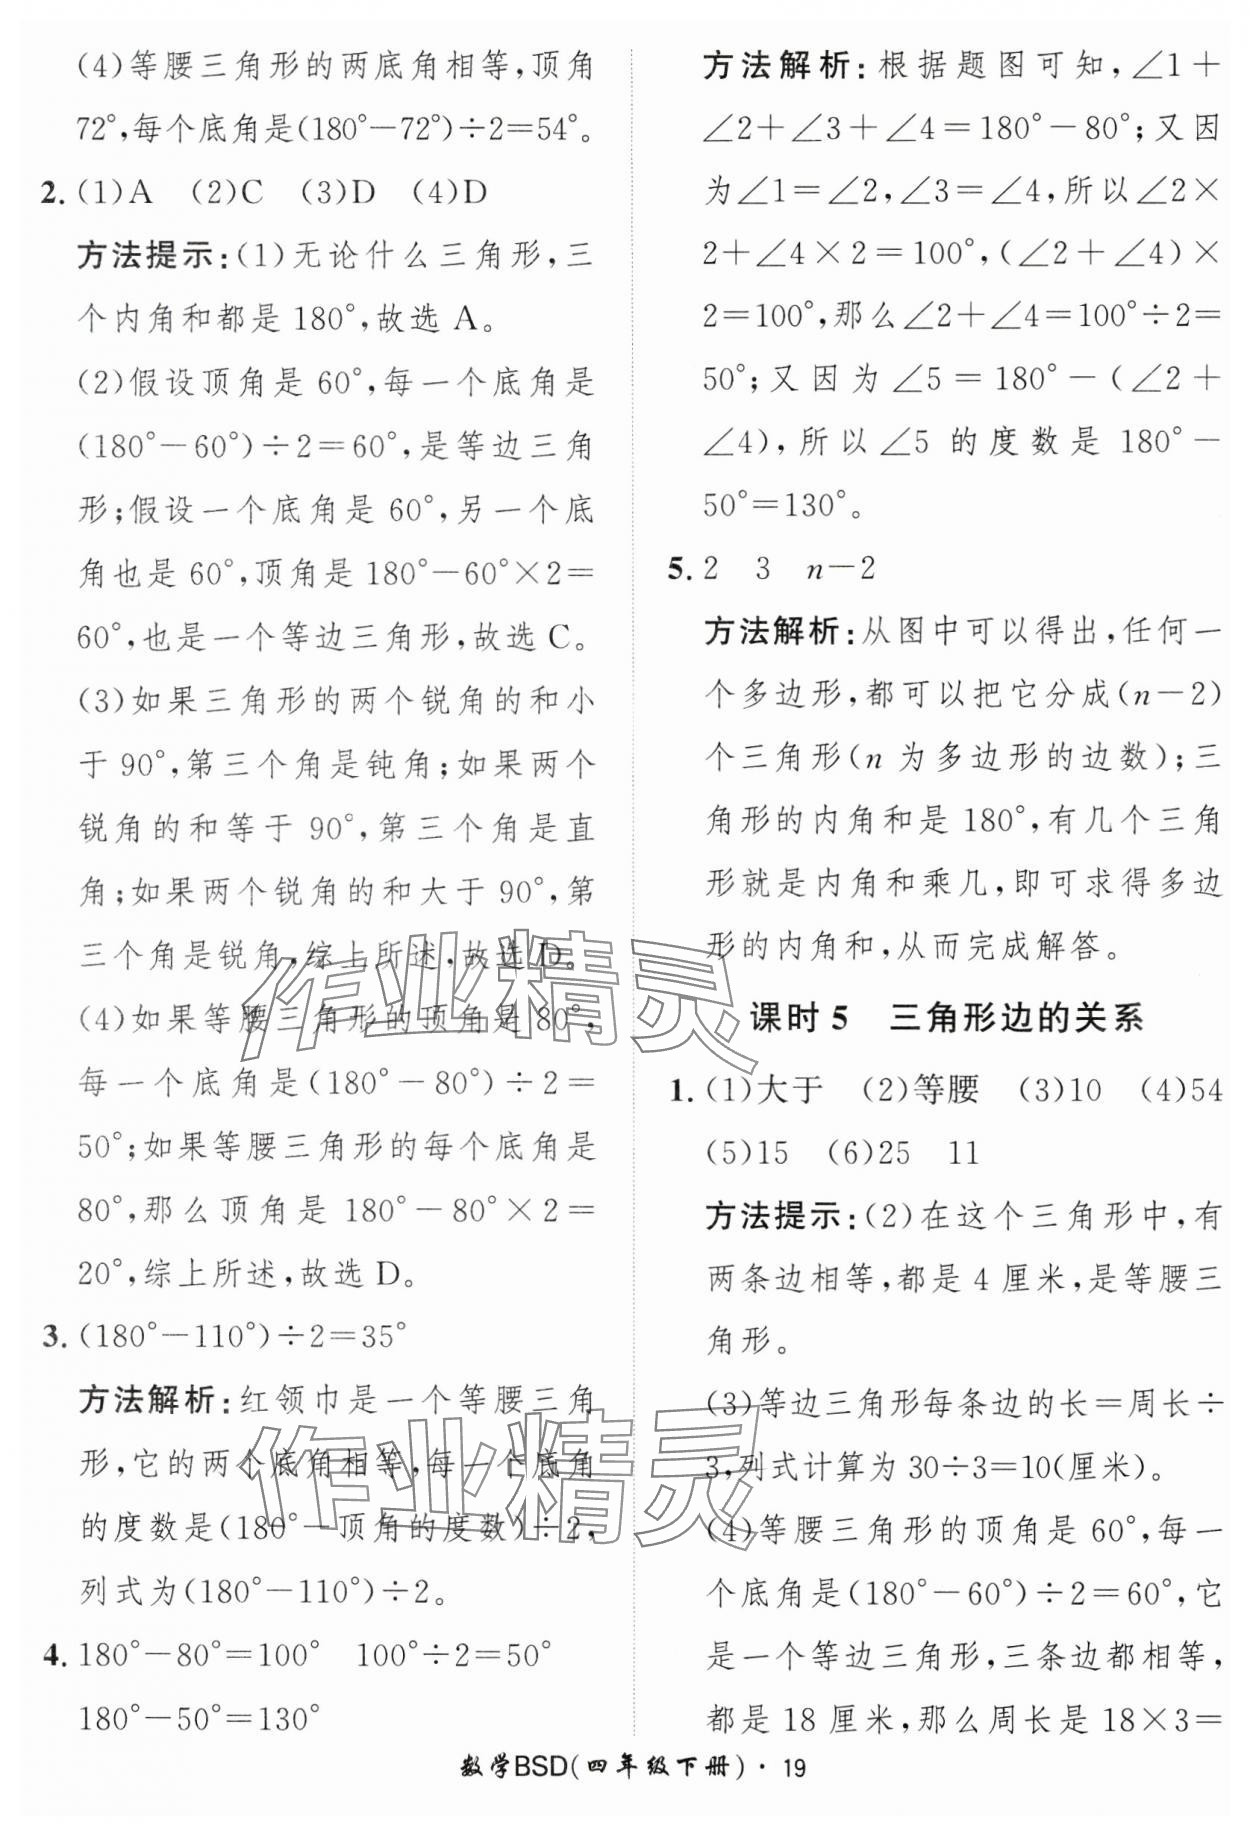 (4)等腰三角形的两底角相等,顶角
72°,每个底角是(180°-72°)÷2=54°。
2. (1)A (2)C (3)D (4)D
方法提示:(1)无论什么三角形,三
个内角和都是 180°,故选 A。
(2)假设顶角是 60°,每一个底角是
(180°-60°)÷2=60°,是等边三角
形;假设一个底角是 60°,另一个底
角也是 60°,顶角是 180°-60°×2=
60°,也是一个等边三角形,故选 C。
(3)如果三角形的两个锐角的和小
于 90°,第三个角是钝角;如果两个
锐角的和等于 90°,第三个角是直
角;如果两个锐角的和大于 90°,第
三个角是锐角,综上所述,故选 D。
(4)如果等腰三角形的顶角是 80°,
每一个底角是(180°-80°)÷2=
50°;如果等腰三角形的每个底角是
80°,那么顶角是 180°-80°×2=
20°,综上所述,故选 D。
3. (180°-110°)÷2=35°
方法解析:红领巾是一个等腰三角
形,它的两个底角相等,每一个底角
的度数是(180°-顶角的度数)÷2,
列式为(180°-110°)÷2。
4. 180°-80°=100° 100°÷2=50°
180°-50°=130°
方法解析:根据题图可知,∠1+
∠2+∠3+∠4=180°-80°;又因
为∠1=∠2,∠3=∠4,所以∠2×
2+∠4×2=100°,(∠2+∠4)×
2=100°,那么∠2+∠4=100°÷2=
50°;又因为∠5=180°-(∠2+
∠4),所以∠5 的度数是 180°-
50°=130°。
5. 2 3 n-2
方法解析:从图中可以得出,任何一
个多边形,都可以把它分成(n-2)
个三角形(n 为多边形的边数);三
角形的内角和是 180°,有几个三角
形就是内角和乘几,即可求得多边
形的内角和,从而完成解答。
课时 5 三角形边的关系
1. (1)大于 (2)等腰 (3)10 (4)54
(5)15 (6)25 11
方法提示:(2)在这个三角形中,有
两条边相等,都是 4 厘米,是等腰三
角形。
(3)等边三角形每条边的长=周长÷
3,列式计算为 30÷3=10(厘米)。
(4)等腰三角形的顶角是 60°,每一
个底角是(180°-60°)÷2=60°,它
是一个等边三角形,三条边都相等,
都是 18 厘米,那么周长是 18×3=
数学BSD(四年级下册)·19
作业精灵
作业精灵